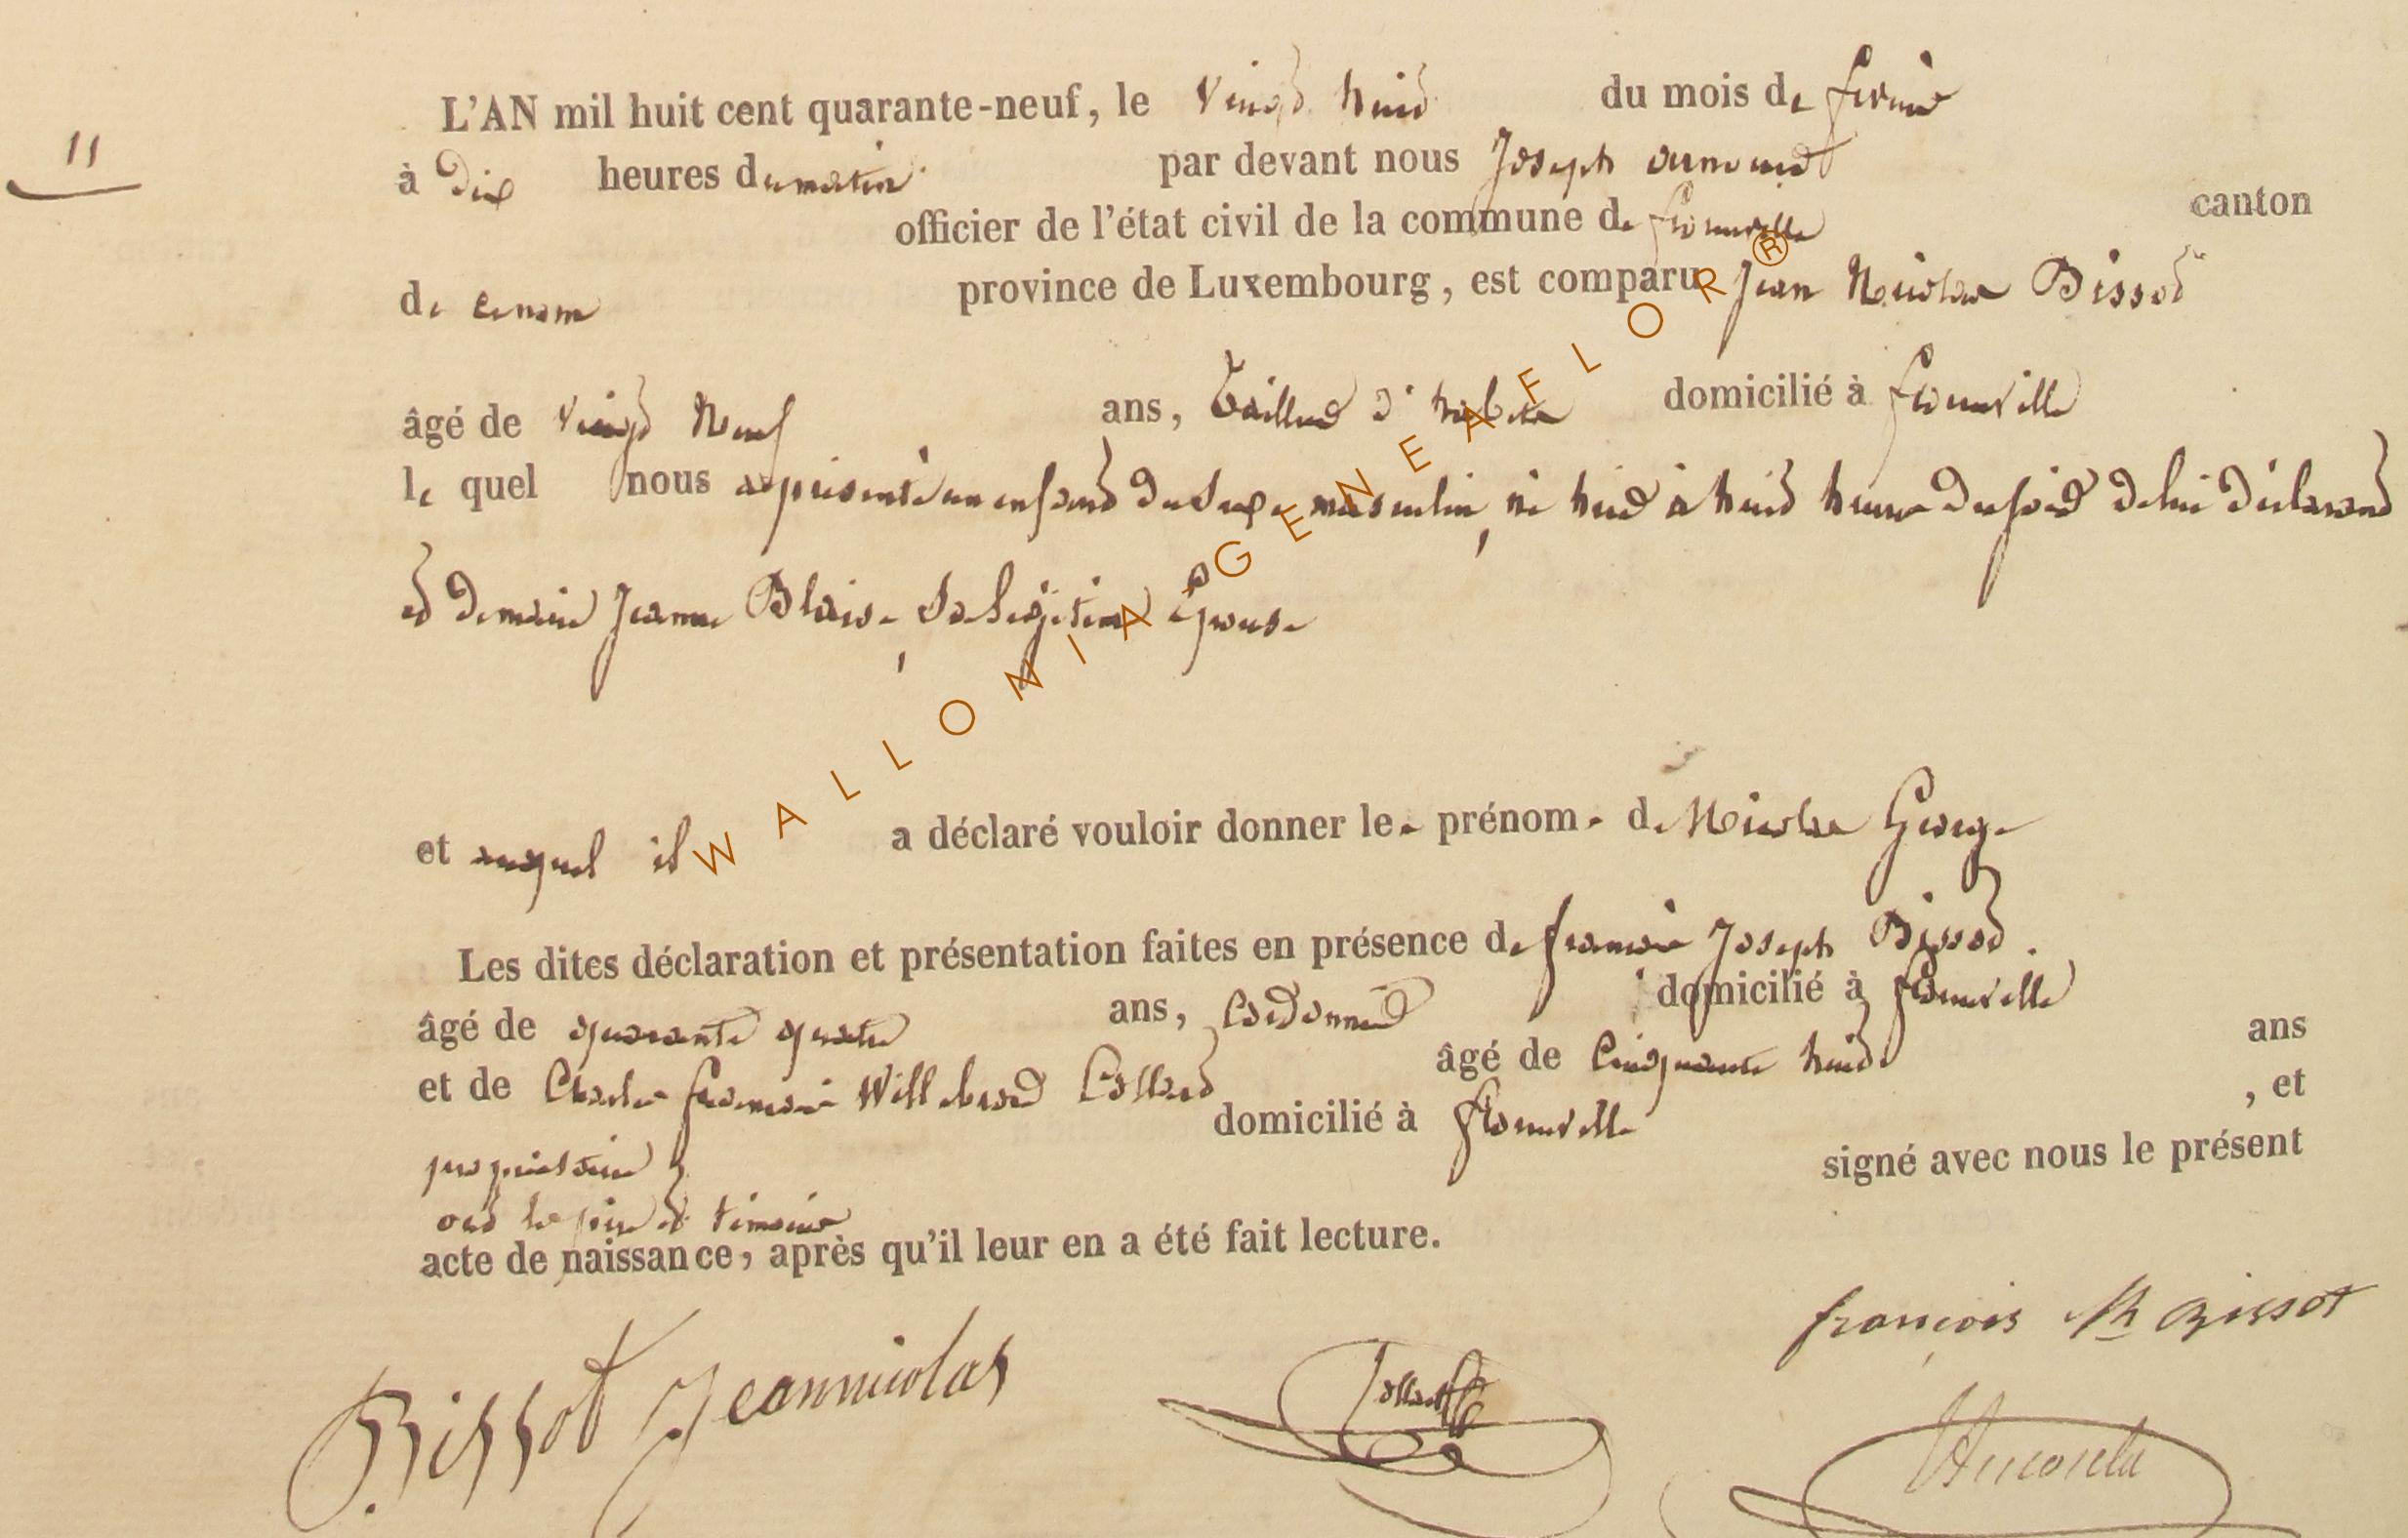 11
L'AN mil huit cent quarante-neuf, le vingt huit du mois de fevrier
à dix heures du matin par devant nous Joseph
officier de l'état civil de la commune de florenville canton
de ce nom province de Luxembourg, est comparu Jean Nicolas Bissot
âgé de vingt Neuf ans, Tailleur d'habits domicilié à florenville
le quel nous a présenté un enfant du Sexe masculin, né hier à huit heures du soir de lui déclarant
et de marie Jeanne Blaise, Sa légitime Epouse
et auquel il a déclaré vouloir donner le prénom de Nicolas George
Les dites déclaration et présentation faites en présence de françois Joseph Bissot
âgé de quarante quatre ans, Cordonnier domicilié à florenville
et de Charles françois Willebrord Collard âgé de Cinquante huit ans
propriétaire domicilié à florenville , et
ont le père et témoins signé avec nous le présent
acte de naissance, après qu'il leur en a été fait lecture.
françois Bissot
Bissot Jeannicolas
Collard
WALLONIA GENEAFLOR®